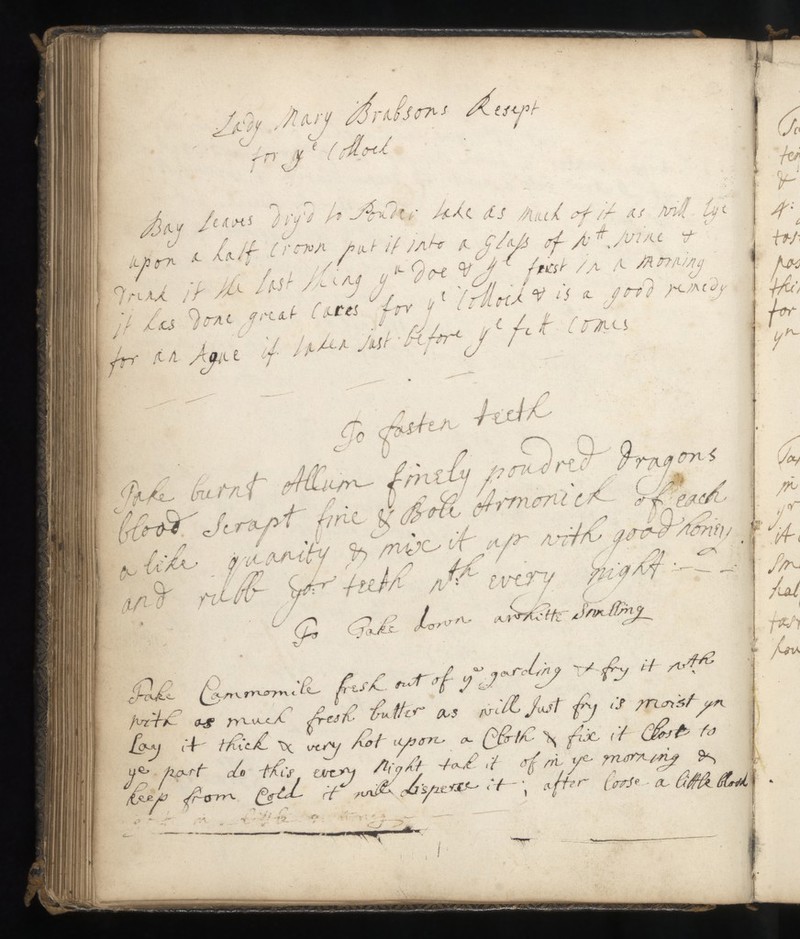 Lady Mary Brabsons Resept
for ye Collock
Bay Leaves Dry'd to Pouder take as much of it as will Lye
upon a half Crown put it into a Glass of wth wine &
Drink it the last thing yu Doe & ye first in a morning
it has Done great Cures for ye Collock & is a good remedy
for an Ague if taken Just before ye fitt Comes
To fasten teeth
Take burnt Allum finely poudred Dragons
blood Scrapt fine & Bole Armonick of each
a like quanity & mix it up with good honey
and rubb yor teeth wth every night
To Take down a whitte Swelling
Take Cammomile fresh out of ye garding & fry it wth
with as much fresh butter as will Just fry is moist yn
Lay it thick & very hot upon a Cloth & fix it Close to
ye part do this every Night tak it of in ye morning &
keep from Cold it will disperse it; after loose a little blood